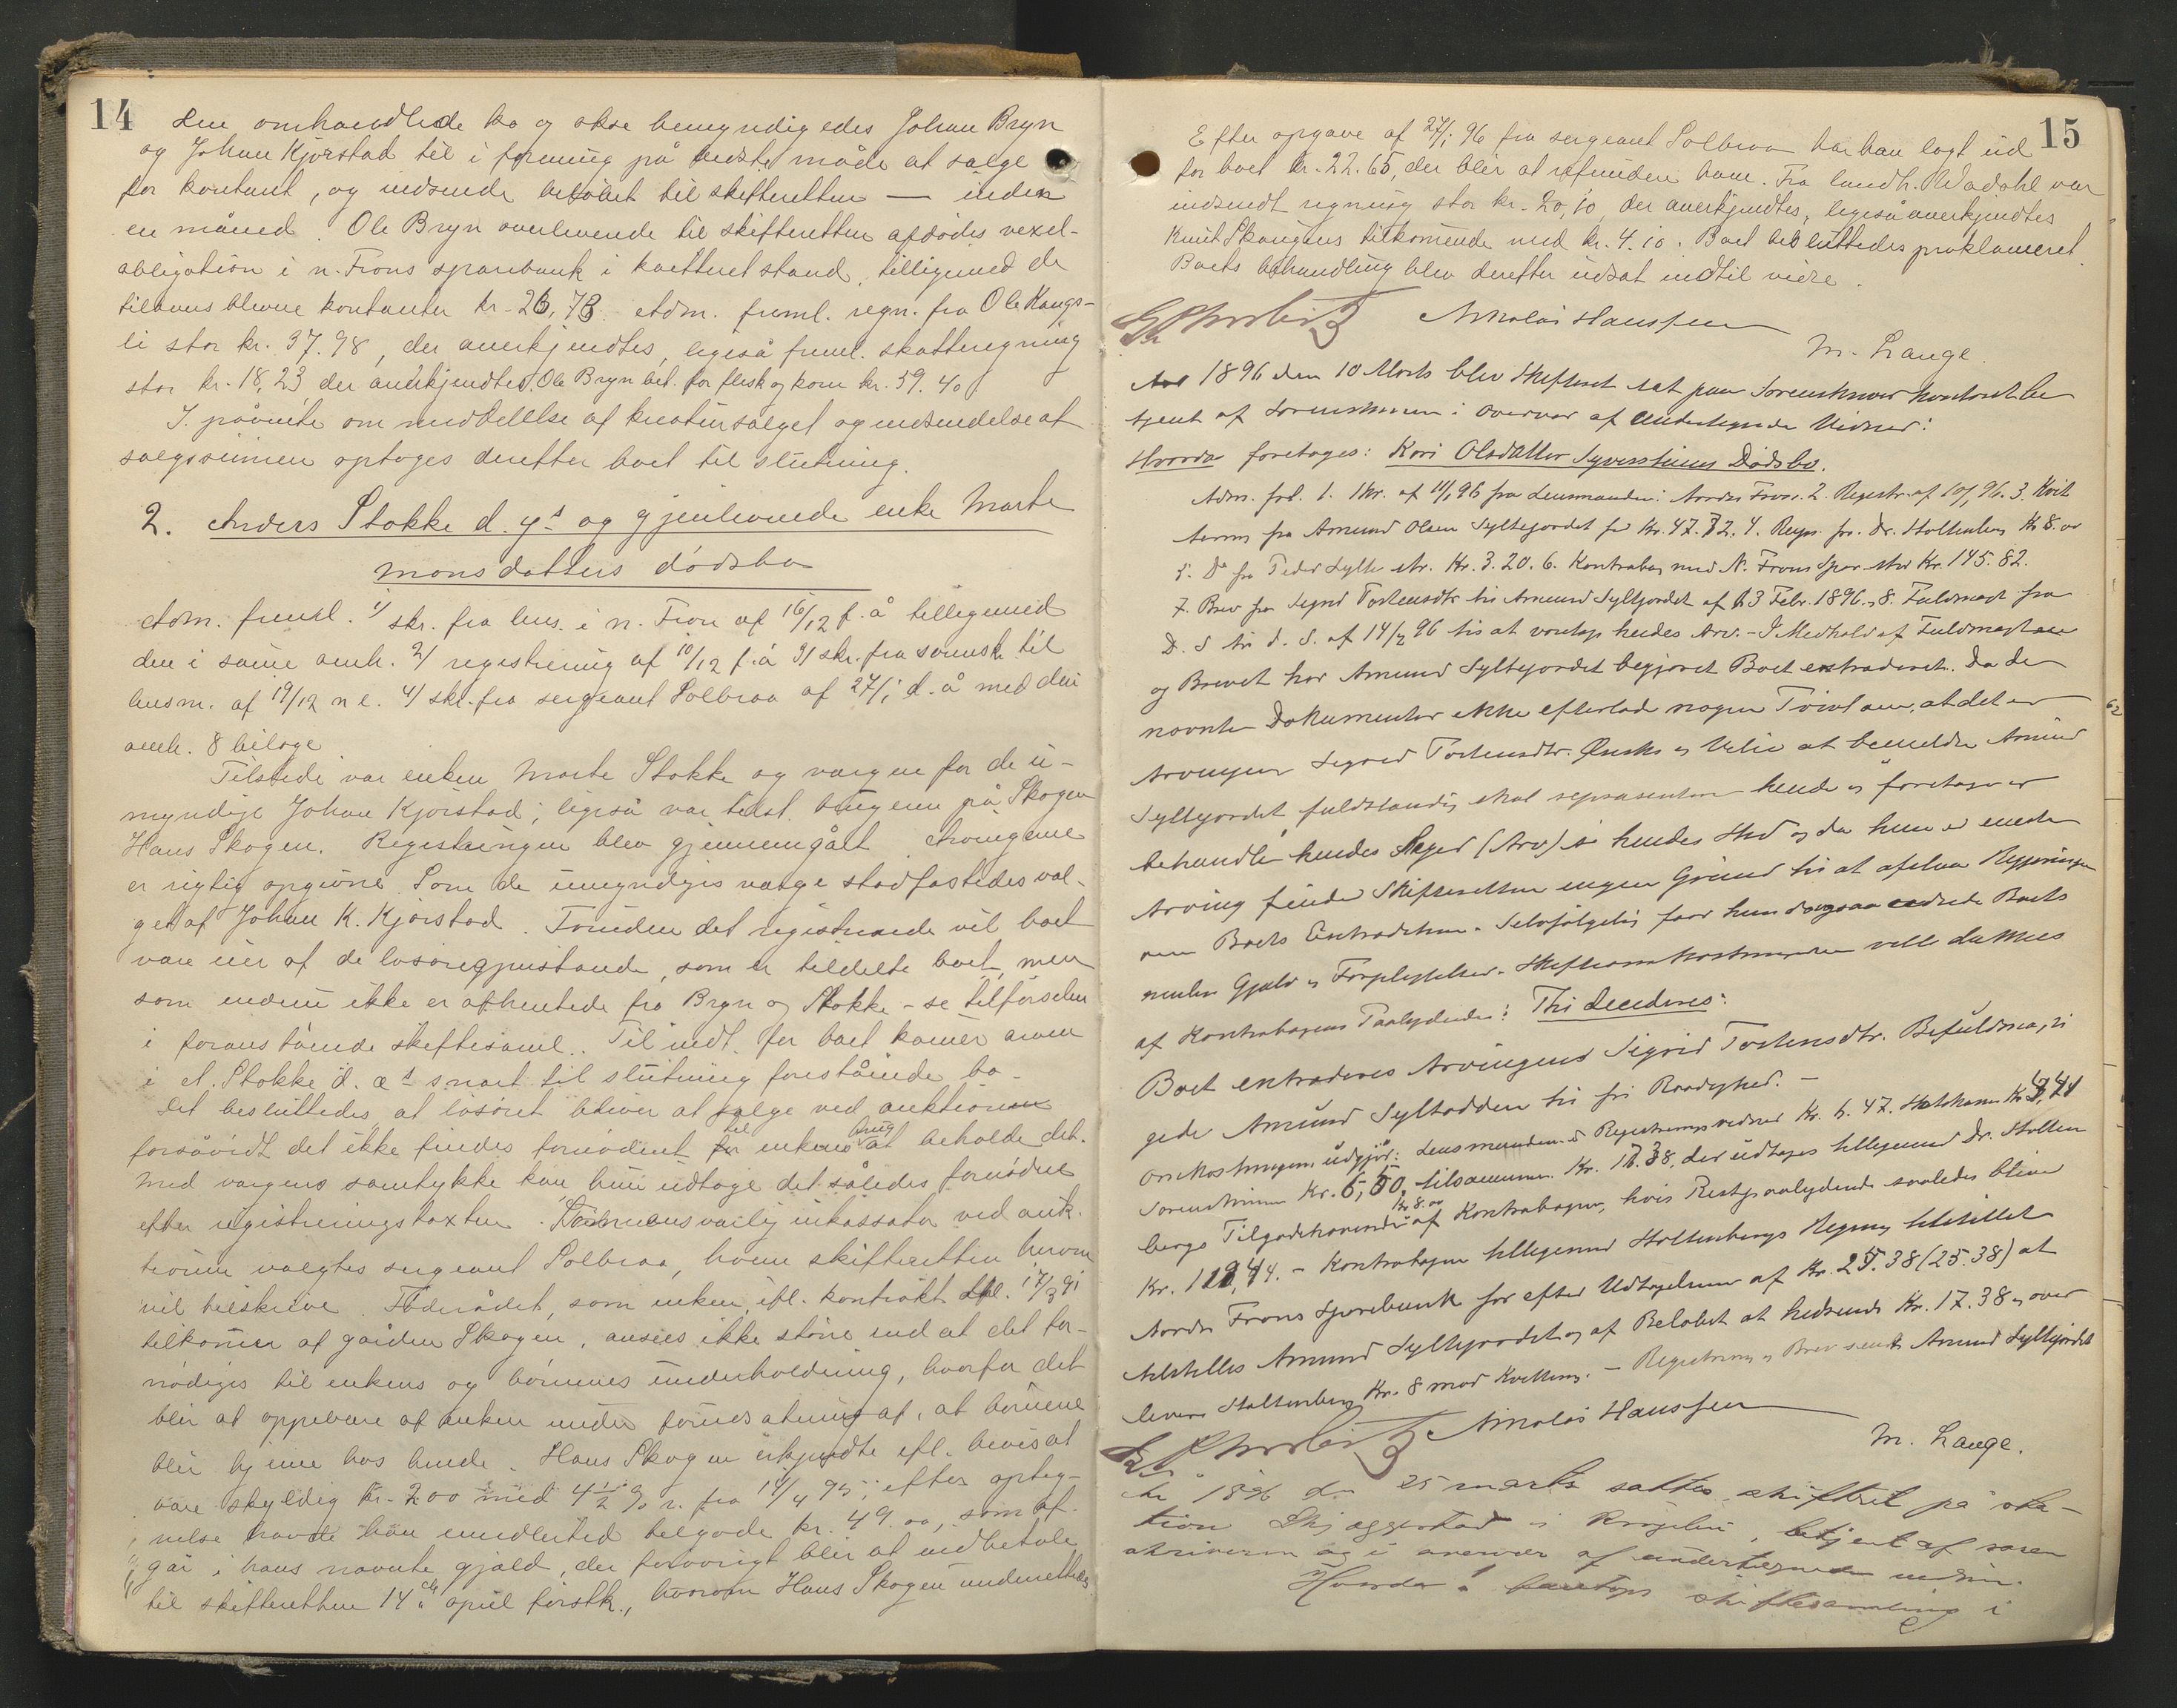 14
den omhandlede ko og okse bemyndigedes Johan Bryn
og Johan Kjørstad til i forening på bedste måde at sælge
for kontant, og indsende beløbet til skifteretten — inden
en måned. Ole Bryn overleverede til skifteretten afdødes vexel-
obligation i n. Frons sparebank i kvitteret stand, tilligemed de
tilovers blevne kontanter kr. 26,78. Adm. freml. regn. fra Ole Kongs-
li stor kr. 37.98, der anerkjendtes, ligeså freml. skatteregning
stor kr. 18,23 der anerkjendtes. Ole Bryn bet. for flesk og korn kr. 59.40
I påvente om meddelelse af kreatursalget og indsendelse af
salgssummen optoges derefter boet til slutning.
2. Anders Stokke d. y.s og gjenlevende enke Marte
Monsdatters dødsbo
Adm. freml. 1/ skr. fra lens. i n. Fron af 16/12 f. å tilligemed
den i samme omh. 2/ registrering af 10/12 f. å 3/ skr. fra sorensk. til
lensm. af 19/12 n l. 4/ skr. fra sergeant Solbraa af 27/1 d. å med deri
omh. 8 bilage
Tilstede var enken Marte Stokke og værgen for de u-
myndige Johan Kjørstad; ligeså var tilst. brugeren på Skogen
Hans Skogen. Registreringen blev gjennemgået. Arvingerne
er rigtig opgivne. Som de umyndiges værge stadfæstedes val-
get af Johan K. Kjørstad. Foruden det registrerede vil boet
være eier af de løsøregjenstande, som er tildelte boet, men
som endnu ikke er afhentede fra Bryn og Stokke – se tilførselen
i foranstående skiftesaml. Til indt. for boet kommer arven
i A. Stokke d. æ.s snart til slutning forestående bo.
Det besluttedes, at løsøret bliver at sælge ved auktion
forsåvidt det ikke findes fornødent til enkens brug at beholde det.
Med værgens samtykke kan hun udtage det således fornødne
efter registreringstaxten. Som ansvarlig inkassator ved auk-
tionen valgtes sergeant Solbraa, hvem skifteretten herom
vil tilskrive. Føderådet, som enken ifl. kontrakt thl. 17/3 91
tilkommer af gården Skogen, ansees ikke større end at det for-
nødiges til enkens og børnenes underholdning, hvorfor det
blir at oppebære af enken under forudsætning af, at børnene
blir hjemme hos hende. Hans Skogen erkjendte ifl. bevis at
være skyldig kr. 200 med 4 1/2 % r. fra 14/4 95; efter opteg-
nelse havde han imidlertid tilgode kr. 49.00, som af-
går i hans nævnte gjæld, der forøvrigt blir at indbetale
til skifteretten 14de april førstk., hvorom Hans Skogen underrettedes.
15
Efter opgave af 27/1 96 fra sergeant Solbraa har han lagt ud
for boet kr. 22.65, der blir at refundere ham. Fra landh. Wadahl var
indsendt regning stor kr. 20,10, der anerkjendtes, ligeså anerkjendtes
Knut Skougens tilkommende med kr. 4.10. Boet besluttedes proklameret.
Boets behandling blev derefter udsat indtil videre.
Nikolai Hanssen
M. Lange.
Aar 1896 den 10 Marts blev Skifteret sat paa Sorenskriverkontoret be
tjent af Sorenskriveren i Overvær af undertegnede Vidner:
Hvorda foretoges: Kari Olsdatter Syverstuens Dødsbo.
Adm. frl. 1. Skr. af 11/1 96 fra Lensmanden i Nordre Fron. 2. Registr. af 10/1 96. 3. Kvit
tering fra Amund Olsen Syltegjordet for Kr. 47.72. 4. Regn. fra Dr. Stoltenberg Kr 8.00
5. Do fra Peder Sylte str. Kr. 3.20. 6. Kontrabog med N. Frons Spar. stor Kr. 145.82.
7. Brev fra Sigrid Tostensdtr til Amund Syltgjordet af 3 Febr. 1896. 8. Fuldmagt fra
D. S til d. S. af 14/2 96 til at varetage hendes Arv. – I Medhold af Fuldmagten
og Brevet har Amund Syltegjordet begjæret Boet extraderet. Da de
nævnte Dokumenter ikke efterlade nogen Tvivl om, at det er
Arvingen Sigrid Tostensdtr. Ønske og Vilie at bemeldte Amund
Syltegjordet fuldstændig skal repræsentere hende og foretage og
behandle hendes Sager (Arv) i hendes Sted og da hun er eneste
Arving finder Skifteretten ingen Grund til at afslaa Begjæringen
om Boets Extradition. Selvfølgelig faar hun dog ogsaa udrede Boets
mulige Gjæld og Forpligtelser. Skifteomkostningerne ville dækkes
af Kontrabogens Paalydende: Thi decideres:
Boet extraderes Arvingens Sigrid Tostensdtr. Befuldmæg-
gede Amund Syltodden til fri Raadighed. –
Omkostningerne udgjør: Lensmanden & Registreringsvidner Kr. 6.47. Statskassen Kr 5,41
Sorenskriveren Kr. 5,50, tilsammen Kr. 17.38, der udtages tilligemed Dr. Stolten
bergs Tilgodehavende Kr 8.00 af Kontrabogen, hvis Restpaalydende saaledes bliver
Kr. 120,44. – Kontrabogen tilligemed Stoltenbergs Regning tilstilles
Nordre Frons Sparebank for efter Udtagelsen af Kr. 25.38 (25.38) at
tilstilles Amund Syltegjordet og af Beløbet at hidsende Kr. 17.38 og over
levere Stoltenberg Kr. 8 mod Kvittering. – Registrering og Brev sendt Amund Syltgjordet
Nikolai Hanssen
M. Lange.
År 1896 den 25 marts sattes skifteret på sta-
tion Skjæggestad i Ringebu, betjent af soren
skriveren og i overvær af undertegnede vidner.
Hvorda foretoges skiftesamling i